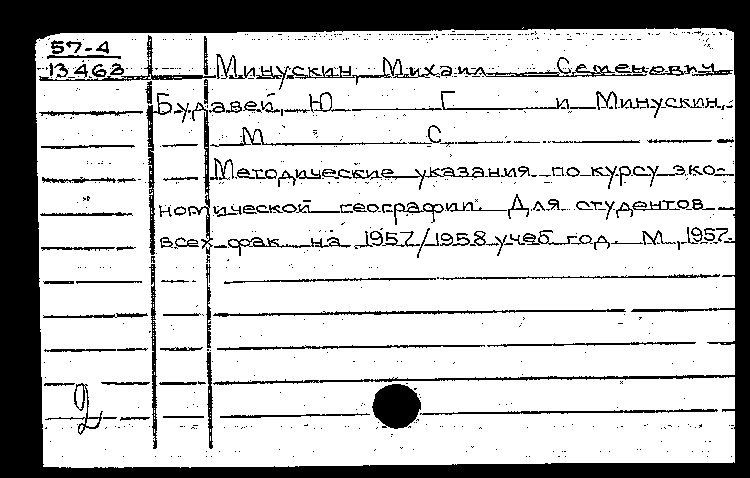 57-4
13463
Минускин, Михаил Семенович
Будавей, Ю Г и Минускин,
М С
Методические указания по курсу эко-
номической географии. Для студентов
всех фак на 1957/1958 учеб год. М, 1957.
2